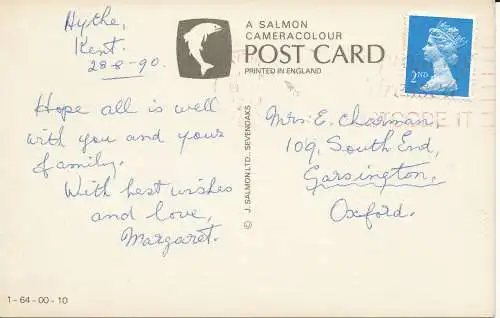 Hythe,
Kent.
28-8-90.
A SALMON
CAMERACOLOUR
POST CARD
PRINTED IN ENGLAND
Hope all is well
with you and your
family.
With best wishes
and love,
Margaret.
© J. SALMON LTD., SEVENOAKS
2ND
Mrs E. Charman,
109, South End,
Garsington,
Oxford.
1-64-00-10